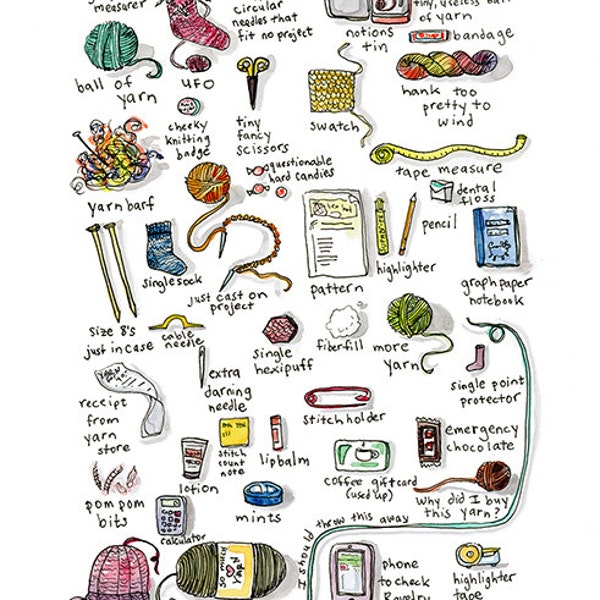 measurer
circular
needles that
fit no project
notions
tin
tiny, useless ball
of yarn
bandage
ball of
yarn
UFO
cheeky
knitting
badge
tiny
fancy
scissors
swatch
hank too
pretty to
wind
yarn barf
questionable
hard candies
tape measure
dental
floss
pencil
single sock
just cast on
project
pattern
highlighter
graph paper
notebook
size 8's
just in case
cable
needle
single
hexipuff
fiberfill
more
yarn
single point
protector
extra
darning
needle
receipt
from
yarn
store
stitch holder
stitch
count
note
lip balm
emergency
chocolate
lotion
coffee giftcard
(used up)
Why did I buy
this yarn?
pom pom
bits
calculator
mints
Should I
throw this away
phone
to check
Ravelry
highlighter
tape